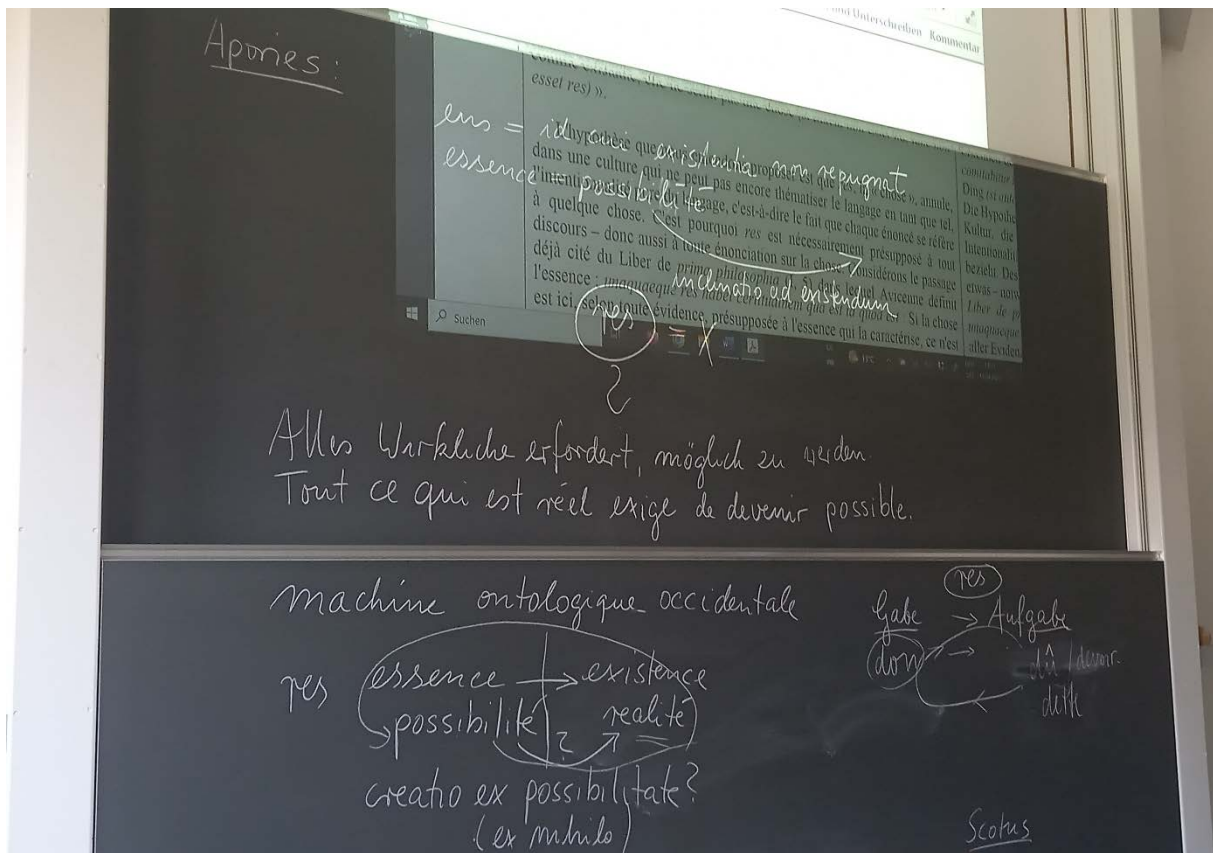 und Unterschreiben Kommentar
Apories :
esset res) ».
L'hypothèse que
dans une culture qui ne peut pas encore thématiser le langage en tant que tel,
langage, c'est-à-dire le fait que chaque énoncé se réfère
à quelque chose. C'est pourquoi res est nécessairement présupposé à tout
discours – donc aussi à toute énonciation sur la chose. Considérons le passage
déjà cité du Liber de prima philosophia dans lequel Avicenne définit
l'essence : unaquaeque res habet certitudinem qua est id quod est. Si la chose
est ici, selon toute évidence, présupposée à l'essence qui la caractérise, ce n'est
Ding ist
Die Hypothe
Kultur, die
Intentionali
bezieht. Des
etwas – notw
Liber de p
unaquaeque
aller Eviden
Suchen
ens = id cui existentia non repugnat
essence = possibilité
inclinatio ad existendum
res = X
?
Alles Wirkliche erfordert, möglich zu werden.
Tout ce qui est réel exige de devenir possible.
machine ontologique occidentale
res essence → existence
possibilité ? realité
creatio ex possibilitate?
(ex nihilo)
res
Gabe → Aufgabe
don → dû / devoir.
dette
Scotus